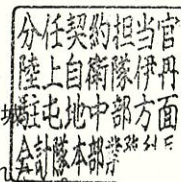 分任契約担当官
陸上自衛隊伊丹
駐屯地中部方面
会計隊本部